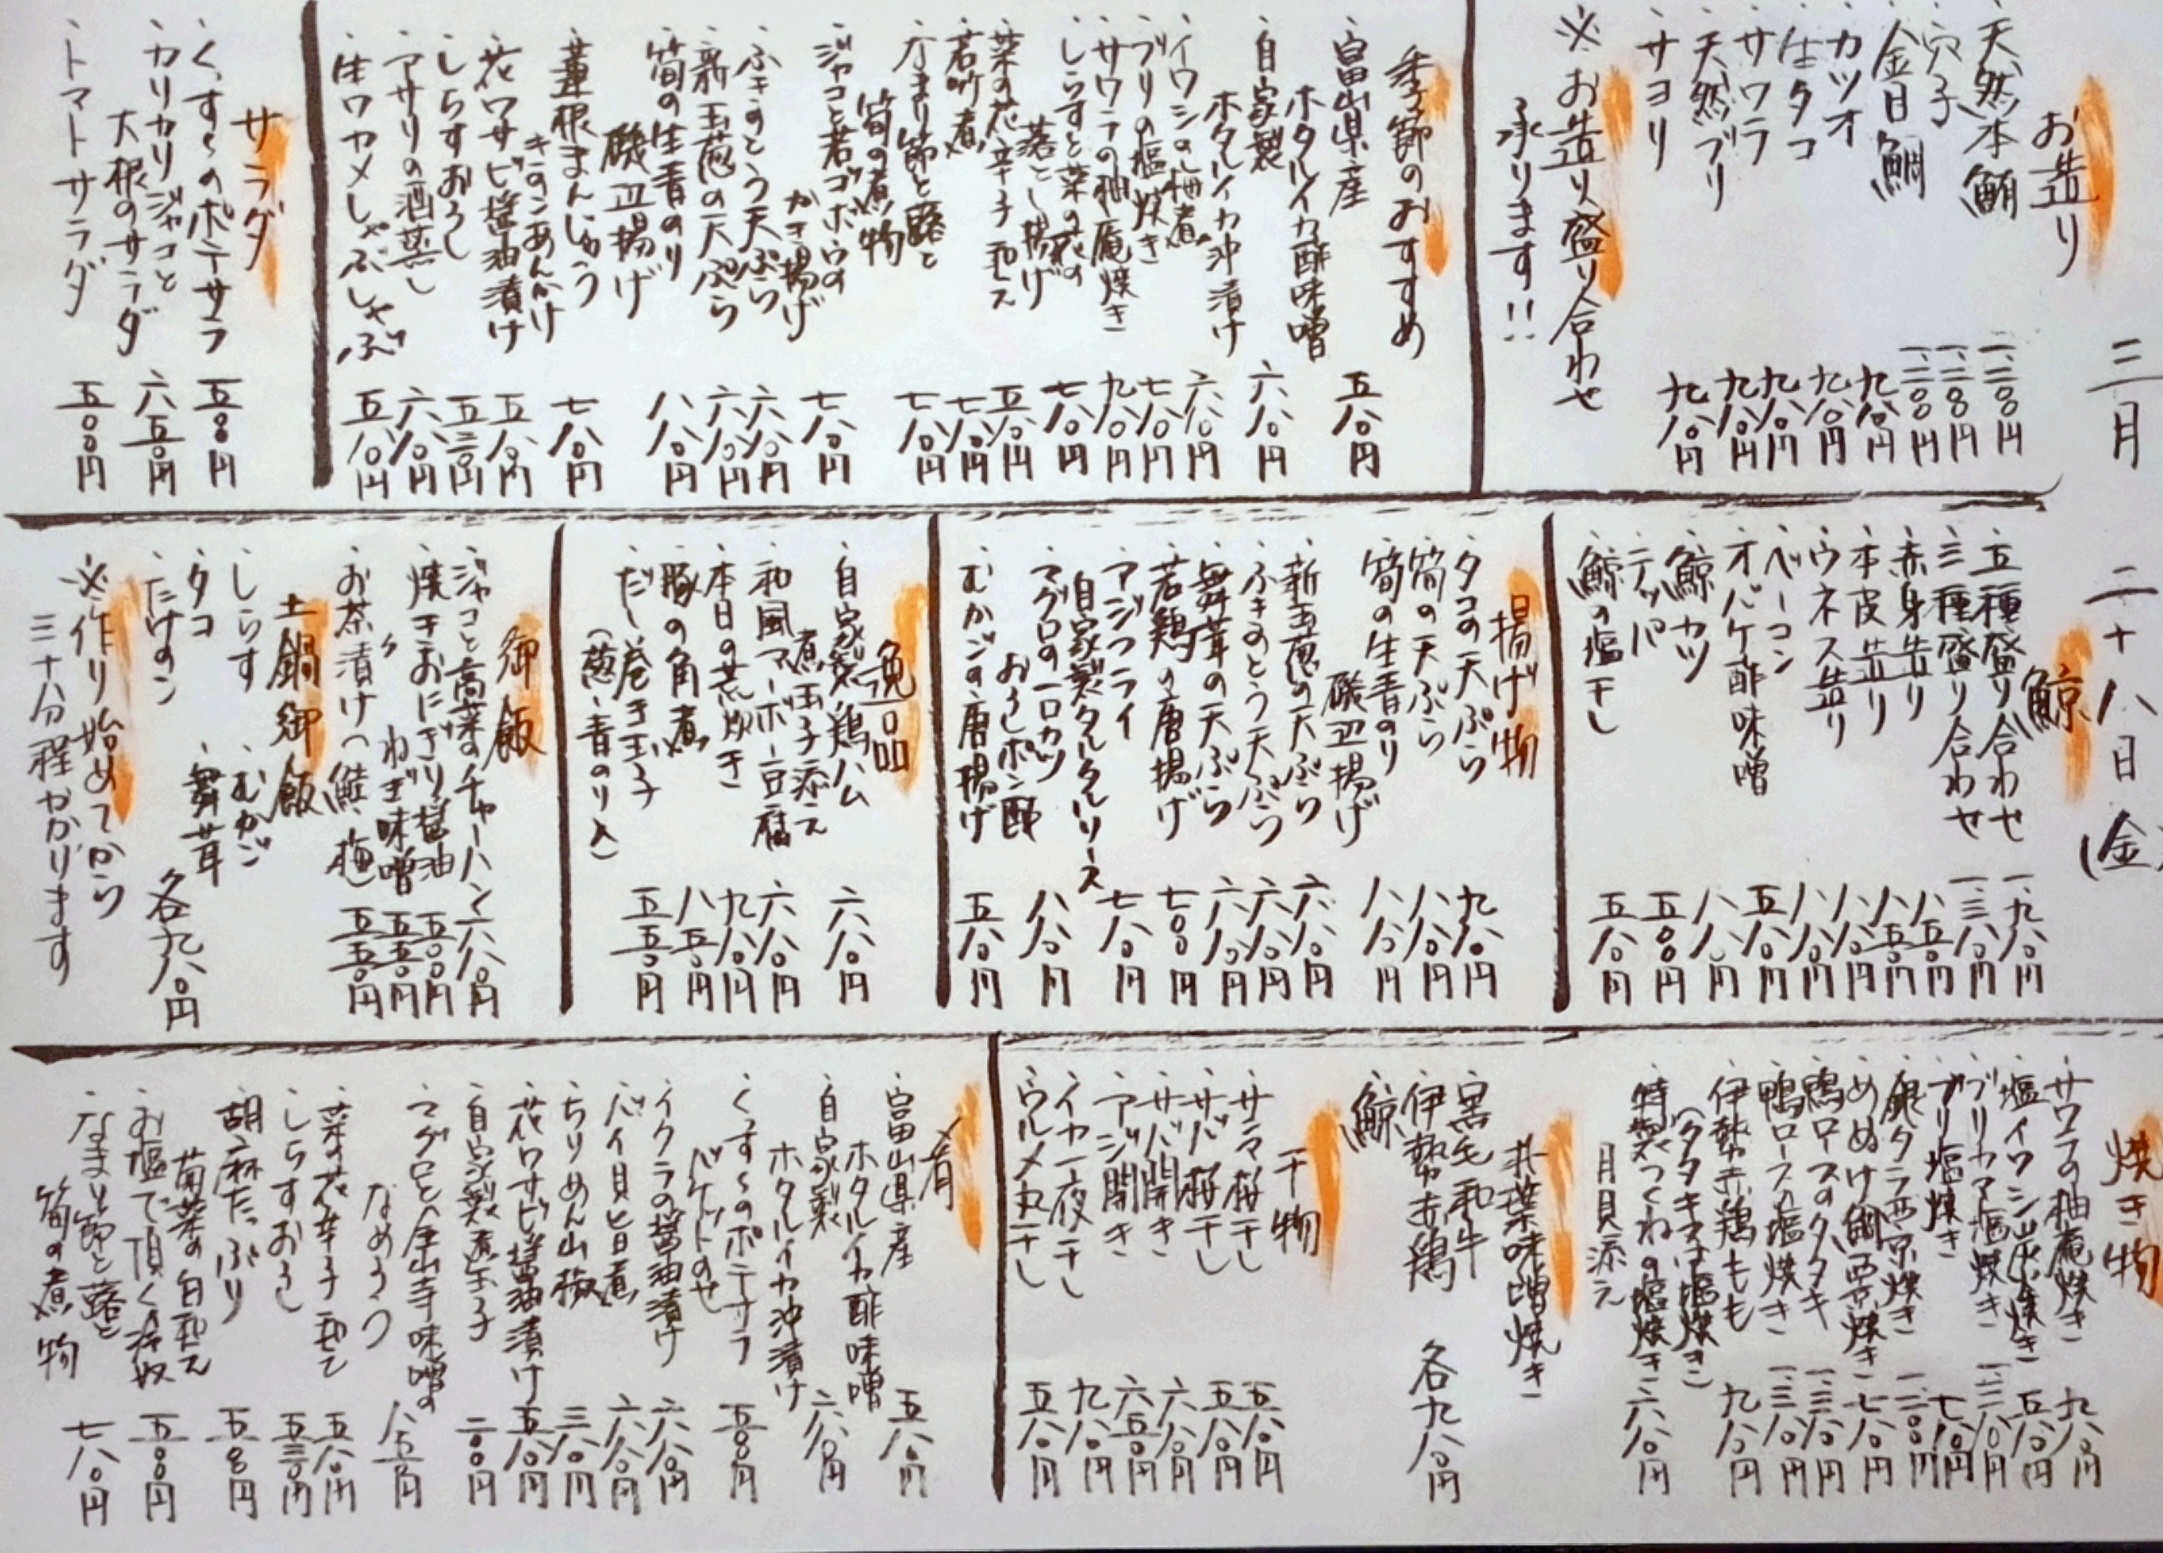 三月 二十八日(金)
お造り
・天然本鮪 一、二〇〇円
・穴子 一、二八〇円
・金目鯛 一、三〇〇円
・カツオ 九八〇円
・生タコ 九八〇円
・サワラ 九八〇円
・天然ブリ 九八〇円
・サヨリ 九八〇円
※お造り盛り合わせ
承ります!!
季節のおすすめ
・富山県産
ホタルイカ酢味噌 五八〇円
・自家製
ホタルイカ沖漬け 六八〇円
・イワシの梅煮 六八〇円
・ブリの塩焼き 七八〇円
・サワラの柚庵焼き 九八〇円
・しらすと菜の花の
落とし揚げ 七八〇円
・菜の花辛子和え 五八〇円
・若竹煮 七八〇円
・なまり節と蕗と
筍の煮物 七八〇円
・ジャコと若ゴボウの
かき揚げ 七八〇円
・ふきのとう天ぷら 六八〇円
・新玉葱の天ぷら 六八〇円
・筍の生青のり
磯辺揚げ 八八〇円
・蓮根まんじゅう
きのこあんかけ 七八〇円
・花ワサビ醤油漬け 五八〇円
・しらすおろし 五三〇円
・アサリの酒蒸し 六八〇円
・生ワカメしゃぶしゃぶ 五八〇円
サラダ
・くすくすのポテサラ 五〇〇円
・カリカリジャコと
大根のサラダ 六五〇円
・トマトサラダ 五〇〇円
鯨
・五種盛り合わせ 一、九八〇円
・三種盛り合わせ 一、三八〇円
・赤身造り 八五〇円
・本皮造り 八五〇円
・ウネス造り 八八〇円
・ベーコン 八八〇円
・オバケ酢味噌 五八〇円
・鯨カツ 八八〇円
・テッパ 五〇〇円
・鯨の塩干し 五八〇円
揚げ物
・タコの天ぷら 九八〇円
・筍の天ぷら 八八〇円
・筍の生青のり
磯辺揚げ 八八〇円
・新玉葱の天ぷら 六八〇円
・ふきのとう天ぷら 六八〇円
・舞茸の天ぷら 六八〇円
・若鶏の唐揚げ 七〇〇円
・アジフライ
自家製タルタルソース 七八〇円
・マグロの一口カツ
おろしポン酢 八八〇円
・むかごの唐揚げ 五八〇円
逸品
・自家製鶏ハム
煮玉子添え 六八〇円
・和風マーボー豆腐 六八〇円
・本日の荒炊き 九八〇円
・豚の角煮 八五〇円
・だし巻き玉子
(葱・青のり入) 五五〇円
御飯
・ジャコと高菜のチャーハン 六八〇円
・焼きおにぎり醤油 五〇〇円
〃 ねぎ味噌 五五〇円
・お茶漬け(鮭・梅) 五五〇円
土鍋御飯
・しらす ・むかご
・タコ ・舞茸
・たけのこ 各九八〇円
※作り始めてから
三十分程かかります
焼き物
・サワラの柚庵焼き 九八〇円
・塩イワシ炭焼き 五八〇円
・ブリカマ塩焼き
・ブリ塩焼き 七八〇円
・銀ダラ西京焼き
・めぬけ鯛西京焼き 七八〇円
・鴨ロースのタタキ 一、三八〇円
・鴨ロース塩焼き 一、三八〇円
・伊勢赤鶏もも
(タタキ又は塩焼き) 九八〇円
・特製つくねの塩焼き
月見添え 六八〇円
朴葉味噌焼き
・黒毛和牛
・伊勢赤鶏
・鯨 各九八〇円
干物
・サンマ桜干し 五八〇円
・サバ桜干し 五八〇円
・サバ開き 六八〇円
・アジ開き 六五〇円
・イカ一夜干し 九八〇円
・ウルメ丸干し 五八〇円
肴
・富山県産
ホタルイカ酢味噌 五八〇円
・自家製
ホタルイカ沖漬け 六八〇円
・くすくすのポテサラ
バケットのせ 五〇〇円
・イクラの醤油漬け 六八〇円
・バイ貝旨煮 六八〇円
・ちりめん山椒 三八〇円
・花ワサビ醤油漬け 五八〇円
・自家製煮玉子 二〇〇円
・マグロと金山寺味噌の
なめろう 八五〇円
・菜の花辛子和え 五八〇円
・しらすおろし 五三〇円
・胡麻たっぷり
菊菜の白和え 五八〇円
・お塩で頂く冷奴 五〇〇円
・なまり節と蕗と
筍の煮物 七八〇円